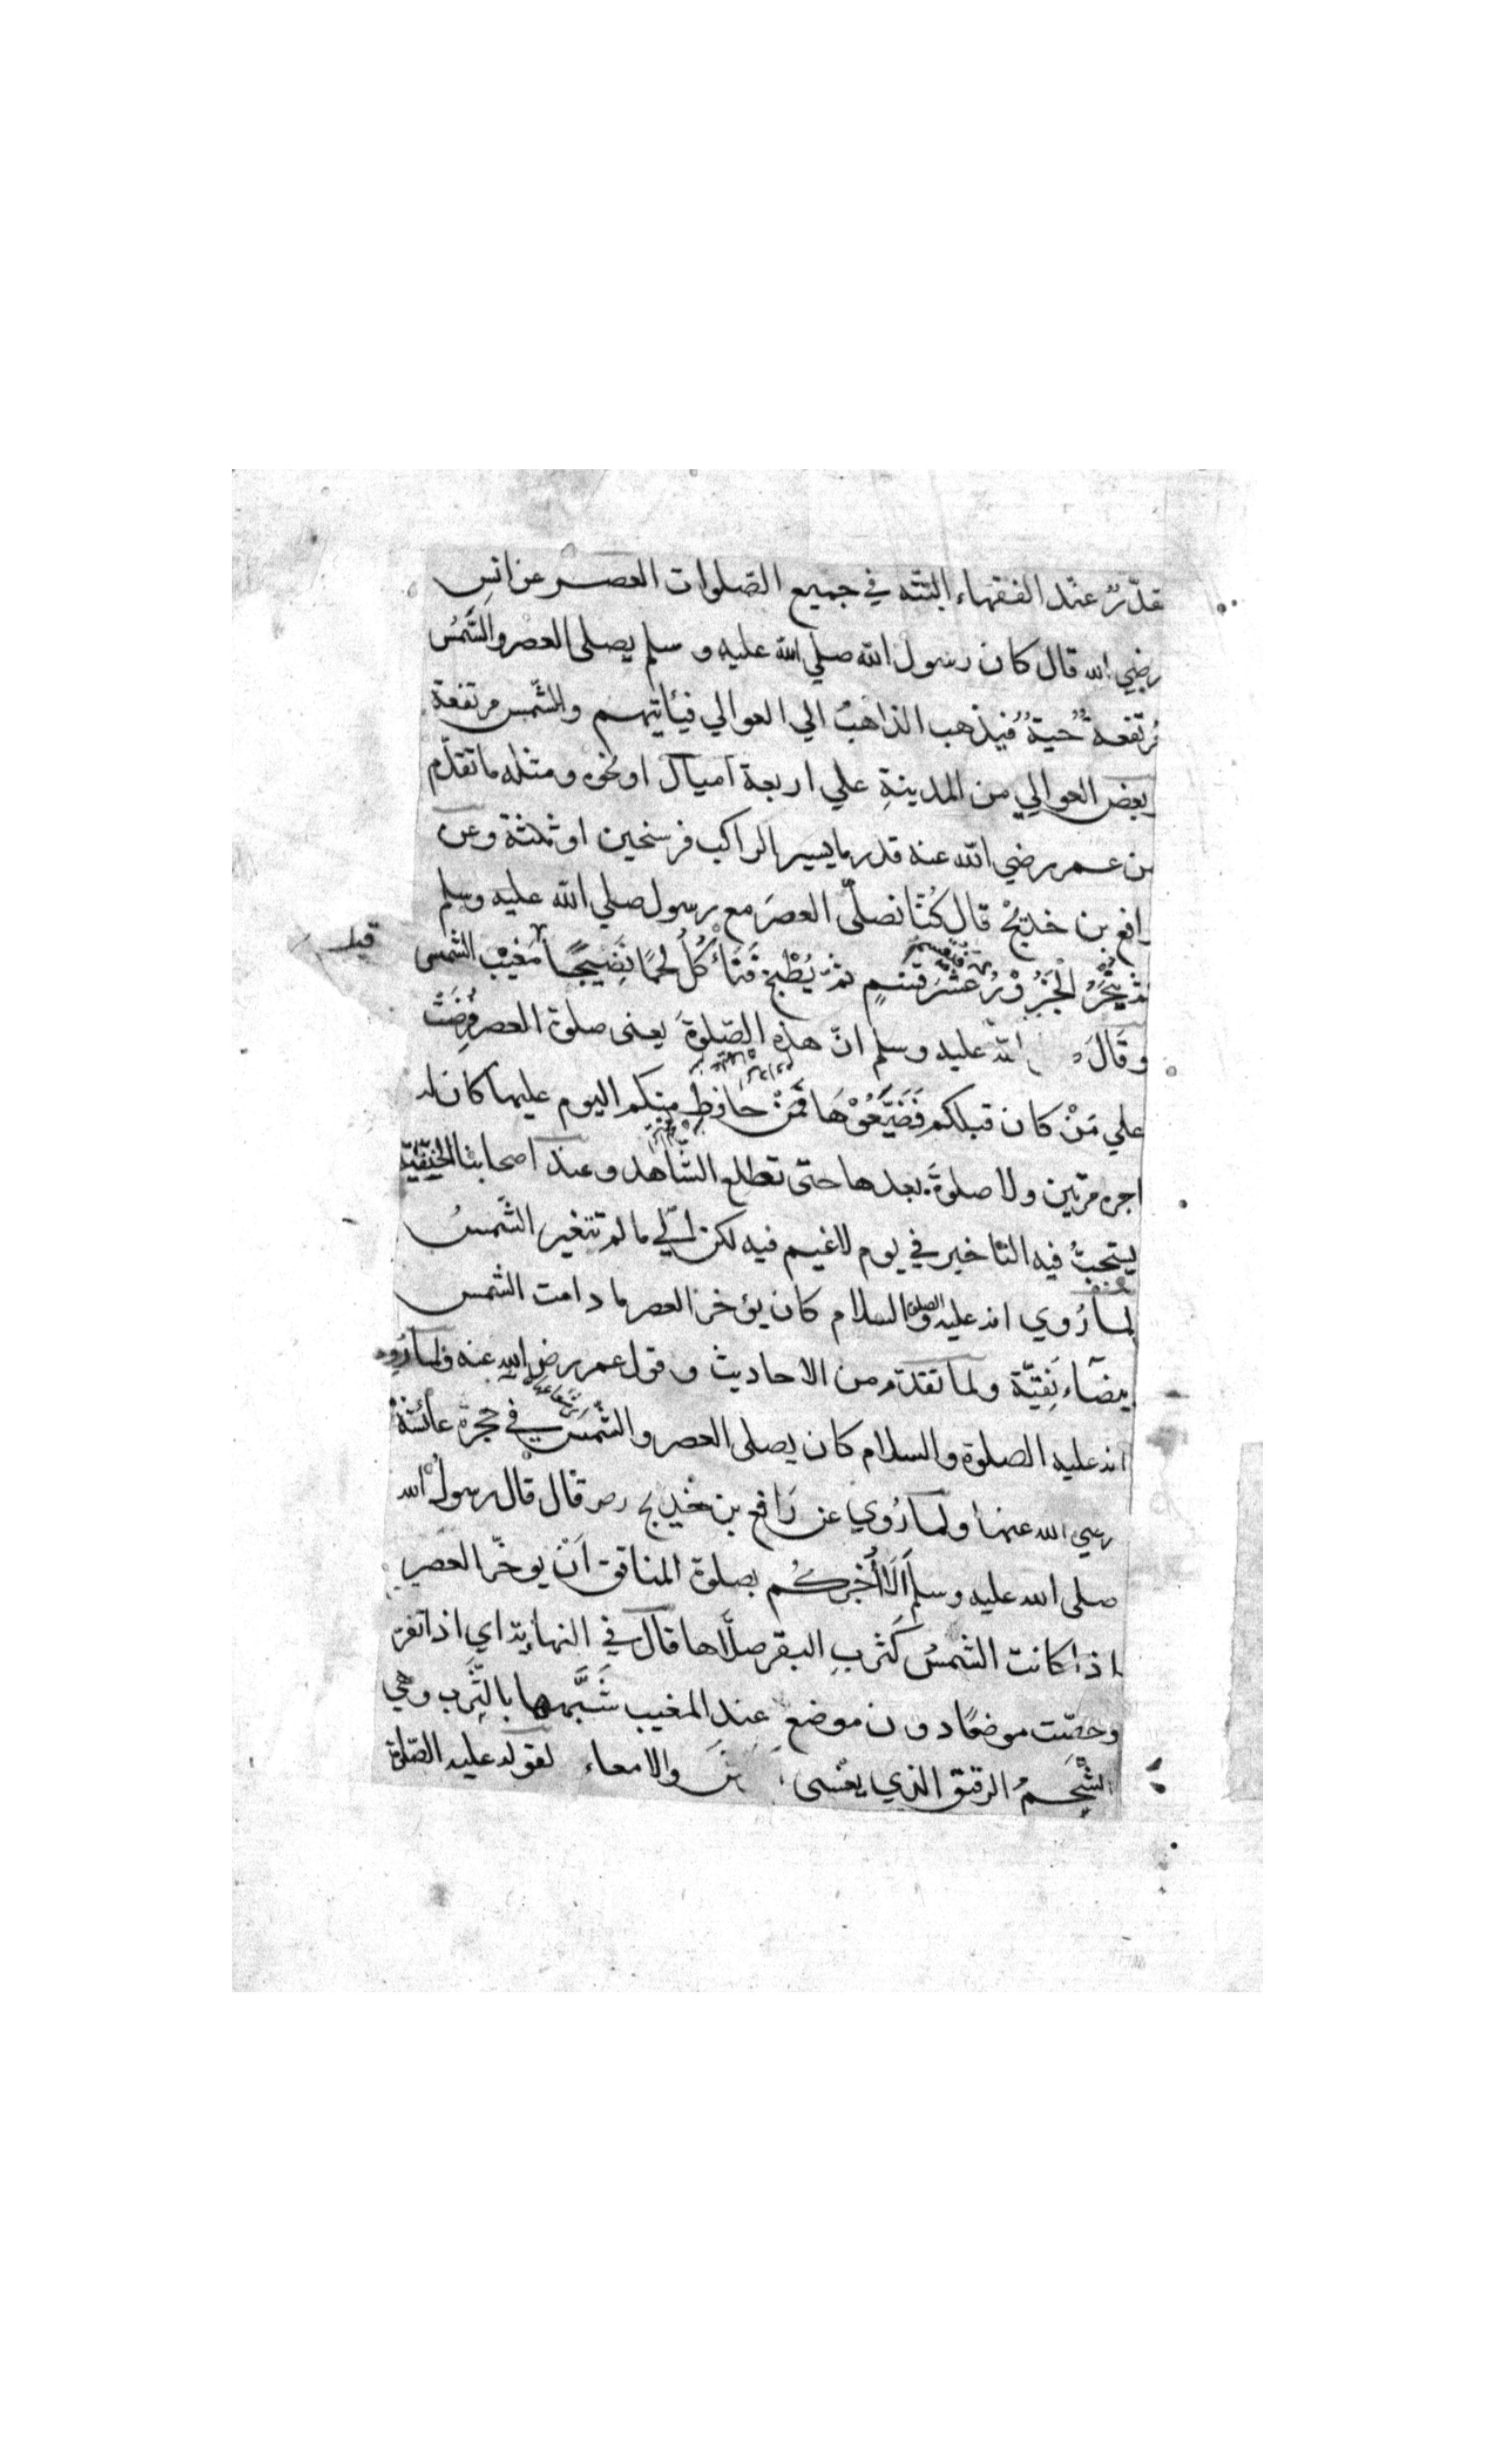 تقدّر عند الفقهاء البتّه في جميع الصّلوات العصر عن انسٍ
رضي الله قال كان رسول الله صلي الله عليه و سلم يصلى العصر والشّمسُ
مرتفعة حيةٌ فيذهب الذاهبُ الي العوالي فيأتيهم والشّمس مرتفعة
وبعض العوالي من المدينةِ علي اربعة اميال او نحوه ومثله ما تقدّم
من عمر رضي الله عنه قدر ما يسير الراكب فرسخين او ثلثة وعن
رافع بن خديج قال كُنّا نصلّى العصرَ مع رسول صلي الله عليه وسلم
ثم يُنْحَرُ الْجَزُوْرُ فتقسم عَشَرَ قِسَمٍ ثمّ يُطْبَخ فَنَأْكُلُ لحمًا نَضِيجًا مَغِيْب الشمس
قبل
وقَالَ الله عليه وسلم انّ هذه الصّلوةَ يعنى صلوة العصر فُرِضَتْ
علي مَنْ كان قبلكم فَضَيَّعُوْهَا فَمَنْ حافظ منكم اليوم عليها كان له
اجره مرتين ولا صلوةَ بعدها حتى تطلع الشّاهد وعند اصحابنا الحَنَفِيّة
يستحبُّ فيه التاخير في يوم لا غيم فيه لكن الي ما لم تتغير الشّمسُ
لما رُوي انه عليه الصلوة والسلام كان يؤخر العصر ما دامت الشمس
بيضاء نَقيّة ولما تقدّم من الاحاديث و قول عمر رضي الله عنه ولما رُوي
انه عليه الصلوة والسلام كان يصلى العصر والشّمسُ في حجرة عائشة
رضي الله عنها ولما رُوي عن رَافع بن خَديج رضـ قال قال رسولُ الله
صلى الله عليه وسلم اَلَا اُخْبِرُكُم بصلوة المنافق اَنْ يوخّر العصر
اذا كانت الشمسُ كَثَرْبِ البقر صلّاها قال في النهاية اي اذا تفرّ
وخصّت موضعًا دون موضع عند المغيب شَبَّهها بالثَّرب وهي
الشّحمُ الرقيق الذي يغشى والامعاء لقوله عليه الصّلوة